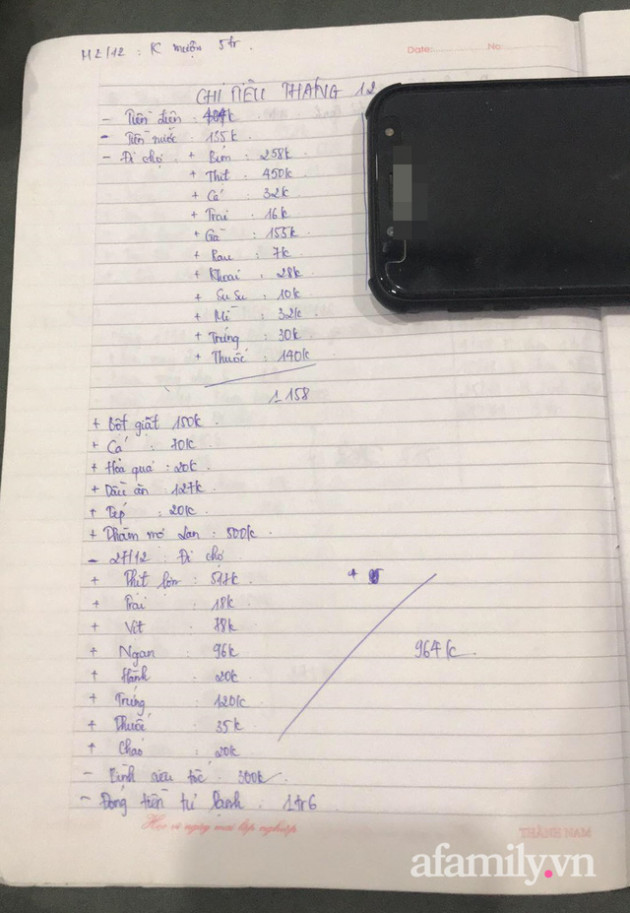 M2/12 : K mượn 5tr.
Date: No
CHI TIÊU THÁNG 12
- Tiền điện :
- Tiền nước : 155k
- Đi chợ : + Bỉm : 258k
+ Thịt : 450k
+ Cá : 32k
+ Trai : 16k
+ Gà : 155k
+ Rau : 7k
+ Khoai : 28k
+ Su Su : 10k
+ Mì : 32k
+ Trứng : 30k
+ Thuốc : 140k
1.158
+ Bột giặt 150k
+ Cá : 70k
+ Hoa quả : 20k
+ Dầu ăn : 127k
+ Tép : 20k
+ Thăm mợ Lan : 500k
- 27/12 : Đi chợ
+ Thịt lợn : 517k
+ Trai : 18k
+ Vịt : 88k
+ Ngan : 96k
+ Hành : 20k
+ Trứng : 120k
+ Thuốc : 35k
+ Chao : 20k
964k
- Bình siêu tốc : 300k
- Đóng tiền tủ lạnh : 1tr6
Học vì ngày mai lập nghiệp
THÀNH NAM
afamily.vn